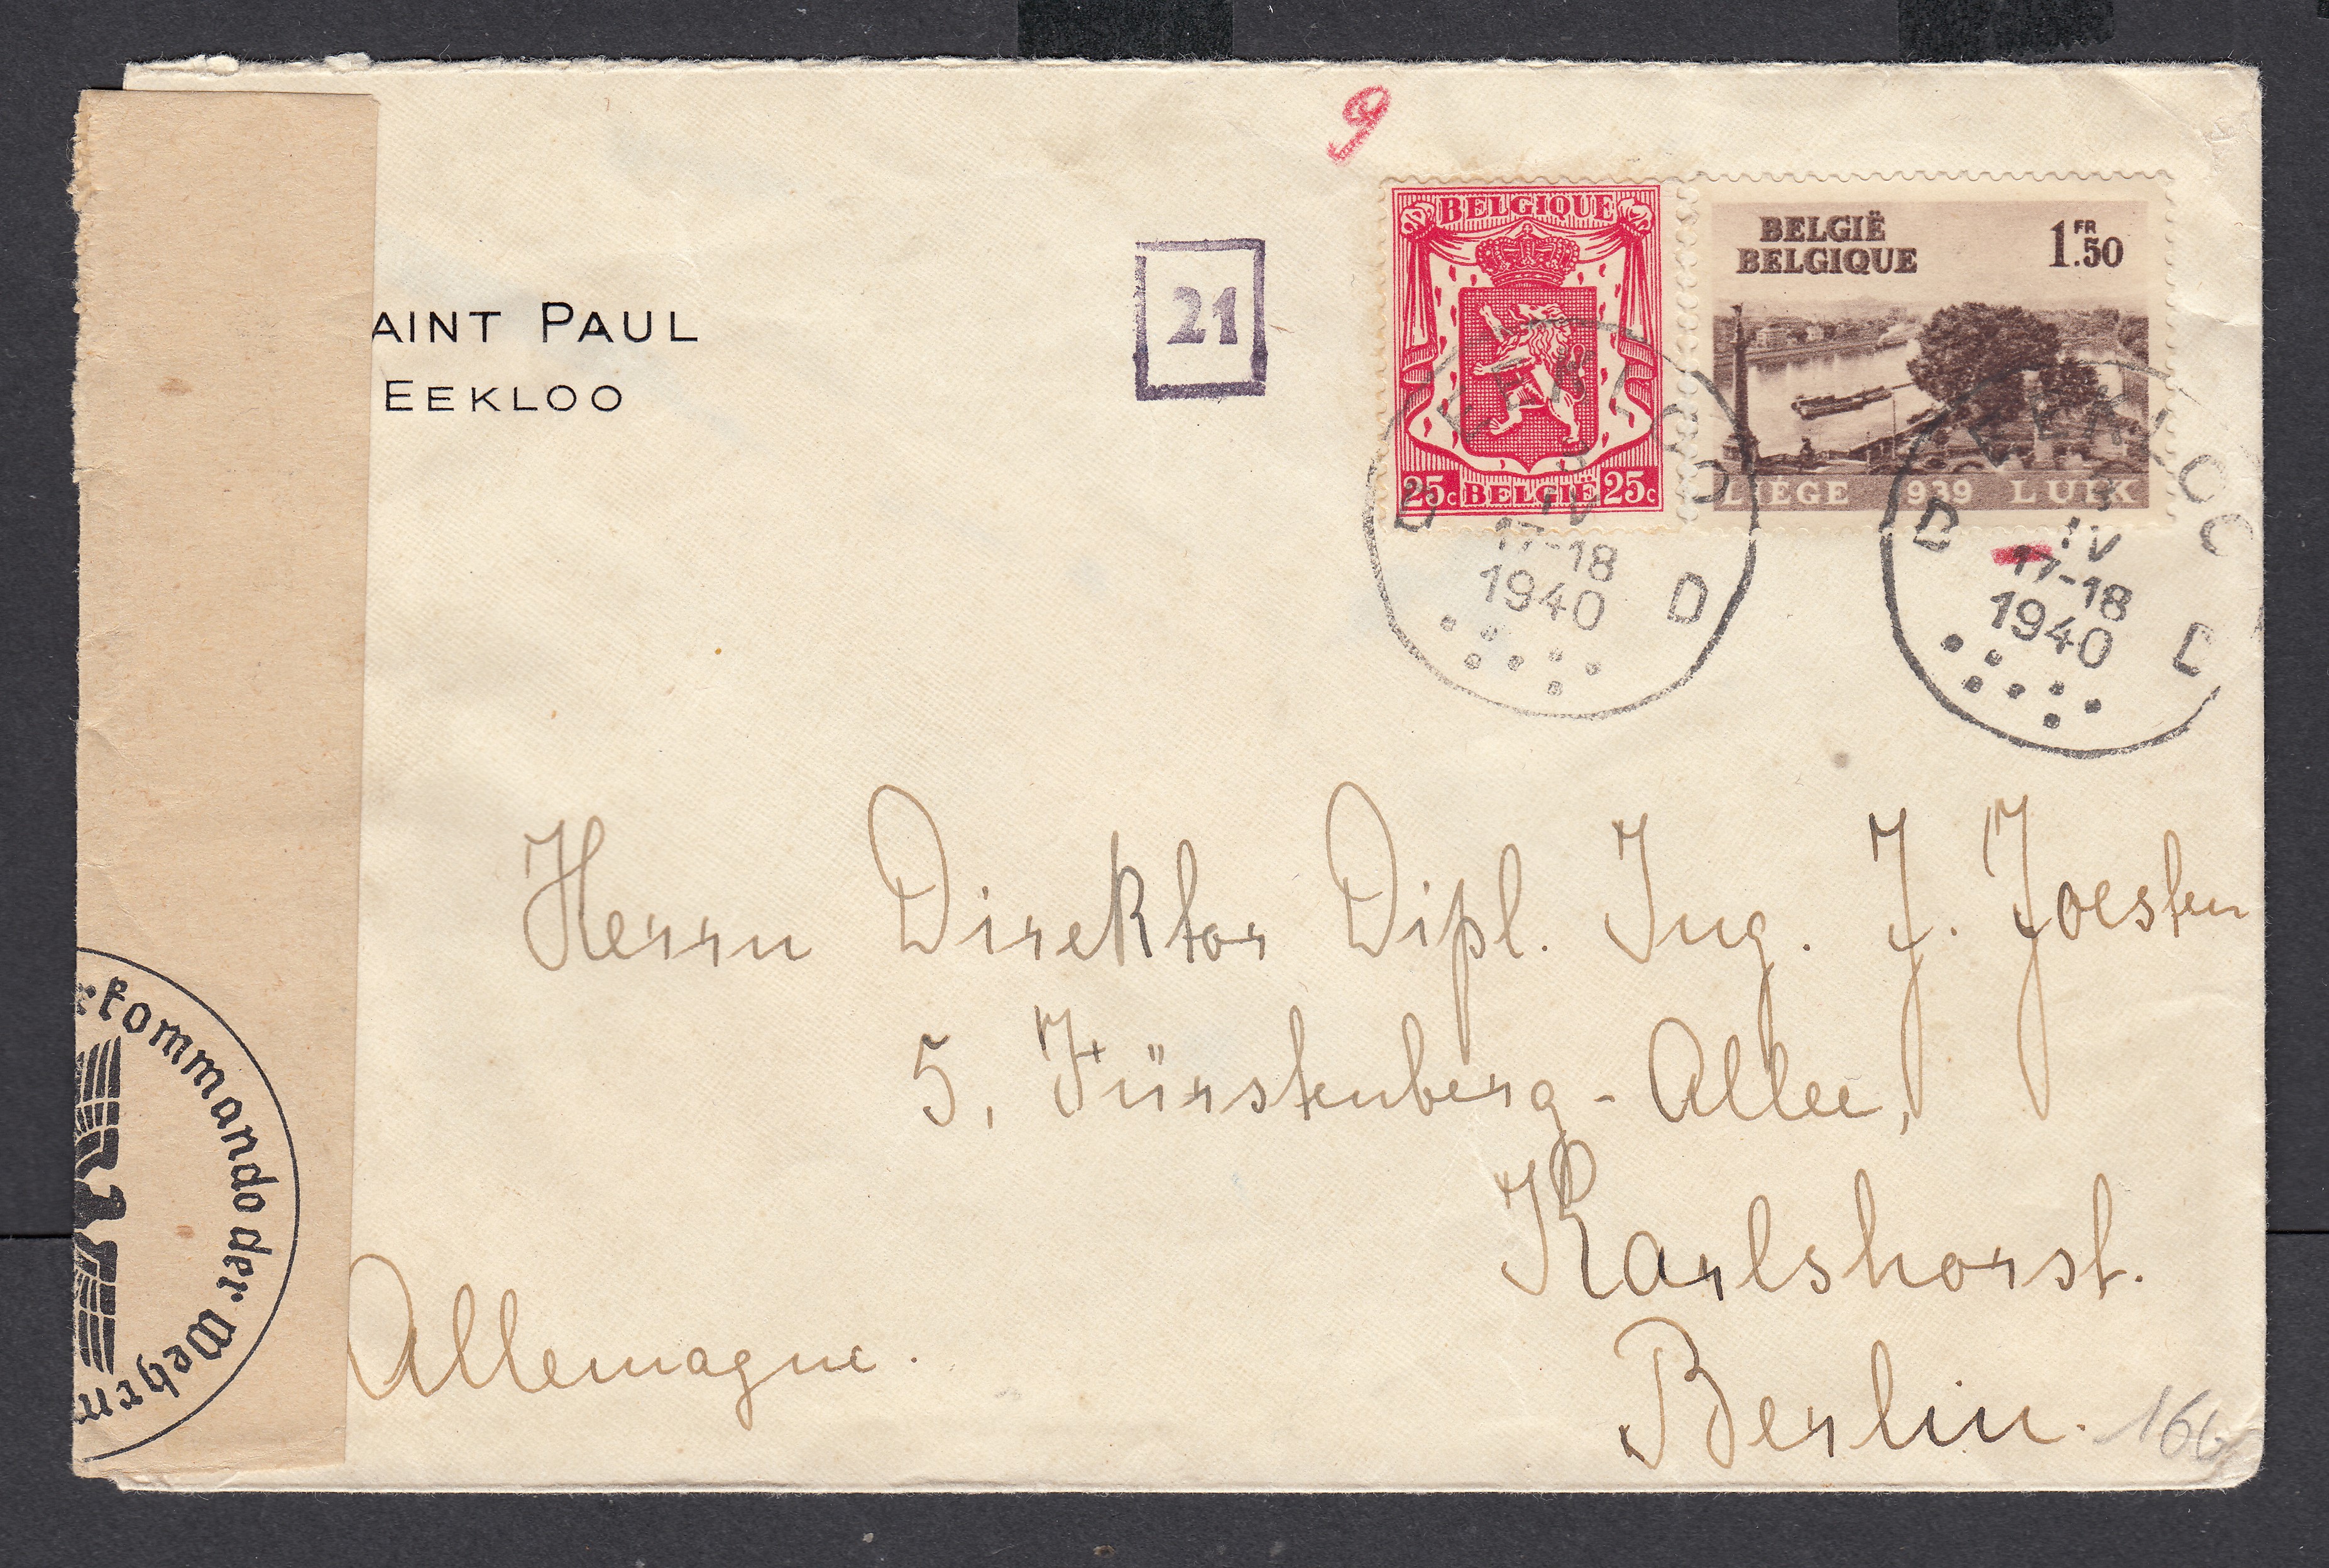 9
AINT PAUL
EEKLOO
21
BELGIQUE
25c BELGIË 25c
BELGIË
BELGIQUE
1FR.50
LIÉGE 1939 LUIK
EEKLOO
D D
IV
17-18
1940
EEKLOO
D D
IV
17-18
1940
Herrn Direktor Dipl. Ing. J. Joesten
5, Fürstenberg-Allee,
Karlshorst.
Berlin.
Allemagne.
kommando der Wehrm